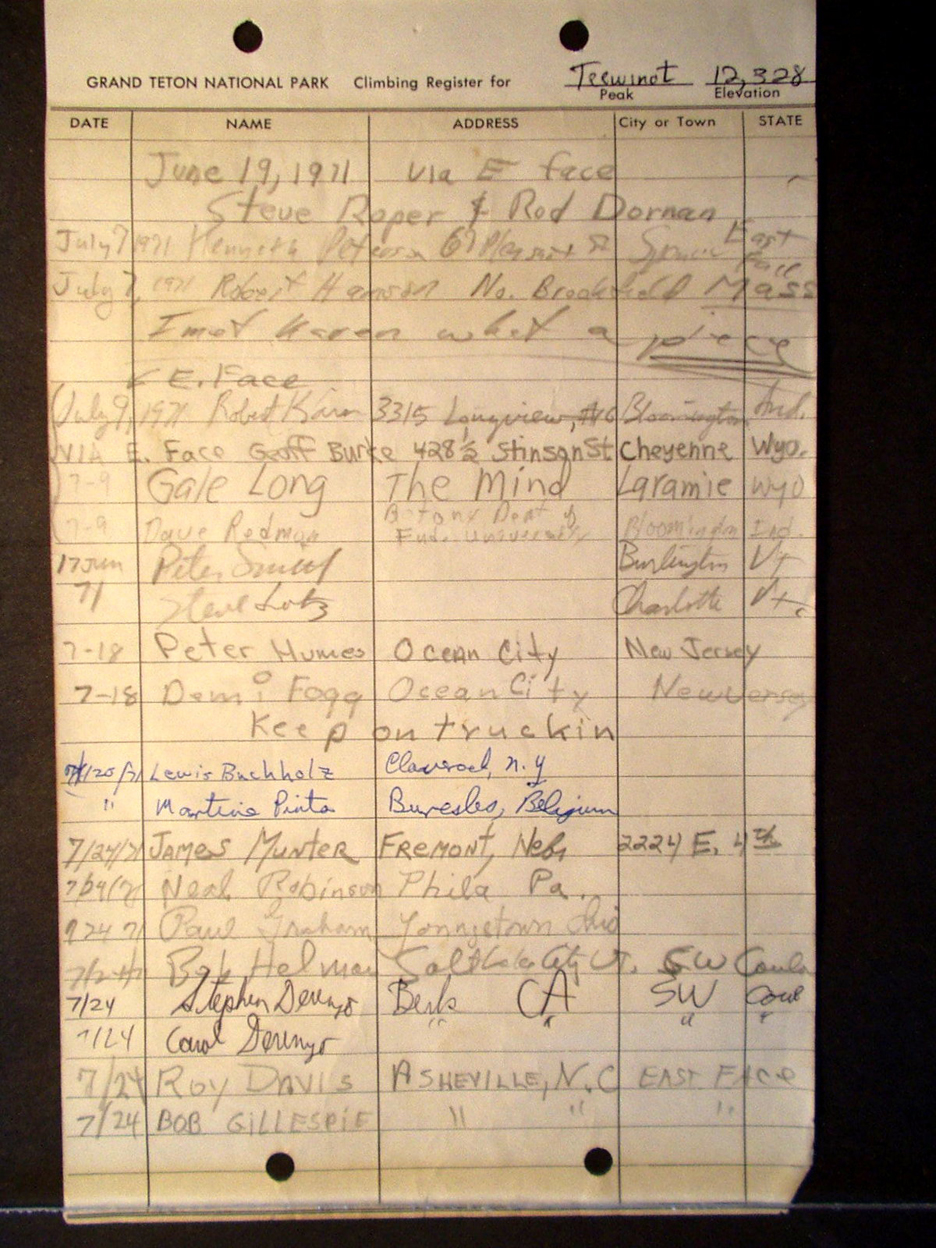 GRAND TETON NATIONAL PARK Climbing Register for Teewinot 12,328
Peak Elevation
DATE NAME ADDRESS City or Town STATE
June 19, 1971 via E face
Steve Roper & Rod Dornan
July 7 1971 Kenneth 67 Pleasant St East
July 7, 1971 Robert No. Brookfield Mass
I met Karen what a piece
E. Face
July 9, 1971 Robert 3315 Longview, Bloomington Ind.
VIA E. Face Geoff Burke 428½ Stinson St Cheyenne Wyo.
7-9 Gale Long The Mind Laramie Wyo
7-9 Dave Redman Botany Dept of Bloomington Ind.
University
17 Jun Peter Burlington Vt
71 Steve Lotz Charlotte Vt.
7-18 Peter Humes Ocean City New Jersey
7-18 Demi Fogg Ocean City New Jersey
Keep on truckin
7/20/71 Lewis Buchholz N.Y
" Martine Belgium
7/24/71 JAMES MUNTER FREMONT, Nebr 2224 E. 4th
7/24/71 Neal Robinson Phila Pa.
24 71 Paul Graham Ohio
Bob Helman Salt Lake City UT. SW
7/24 Stephen Derenzo Berk CA SW
7/24 Carol Derenzo " " " "
7/24 ROY DAVIS ASHEVILLE, N.C EAST FACE
7/24 BOB GILLESPIE " " "